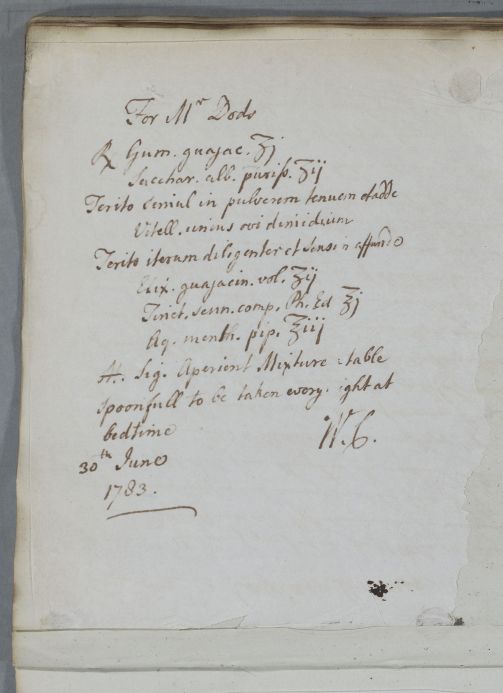 For Mr Dods
℞ Gum. guajac. ʒj
Sacchar. alb. puriss. ʒij
Terito simul in pulverem tenuem et adde
Vitell. unius ovi dimidium
Terito iterum diligenter et sensim affunde
Elix. guajacin. vol. ʒij
Tinct. senn. comp. Ph. Ed ℥j
Aq. menth. pip. ℥iij
M. Sig. Aperient Mixture table
spoonfull to be taken every ight at
bedtime W. C.
30th June
1783.